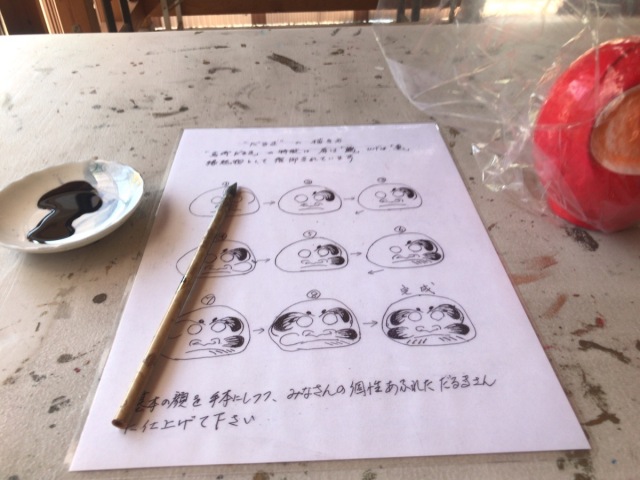 "だるま" の描き方
「高崎だるま」の特徴は 眉は「鶴」、ひげは「亀」
縁起物として 信仰されています
① → ② → ③
⑤ → ⑥
⑦ → ⑧ → 完成
の顔を手本にしつつ、みなさんの個性あふれた だるまさん
に仕上げて下さい